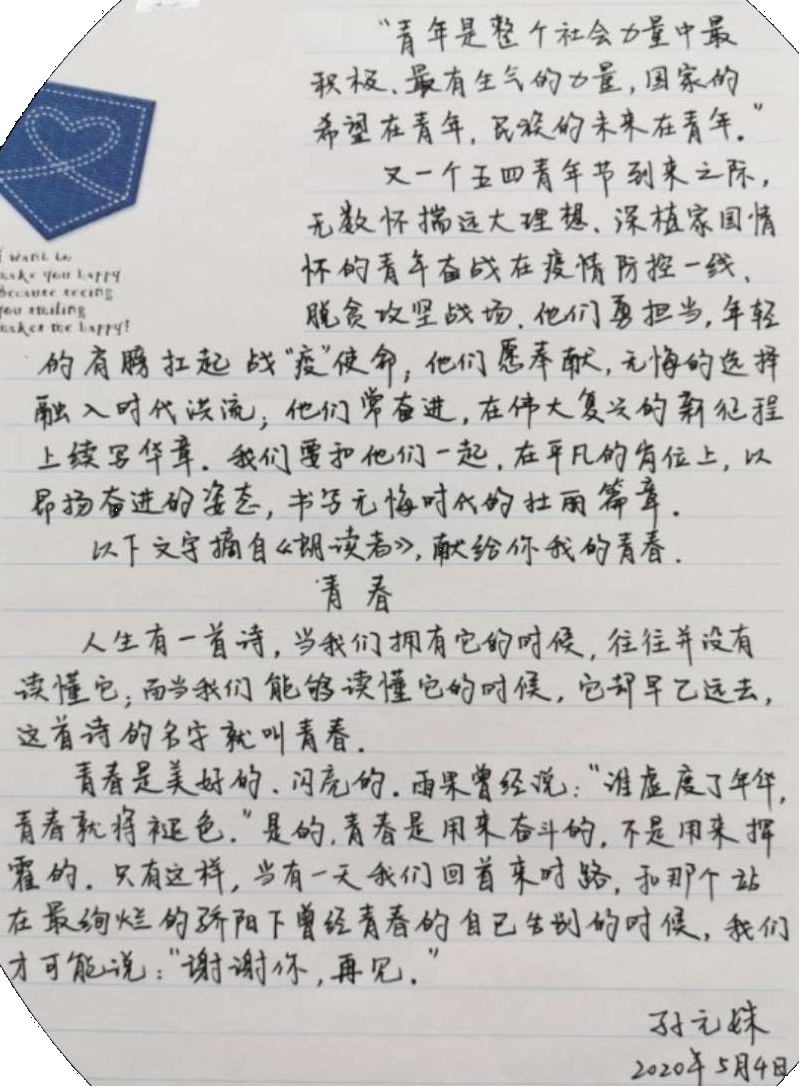 “青年是整个社会力量中最
积极、最有生气的力量，国家的
希望在青年，民族的未来在青年。”
又一个五四青年节到来之际，
无数怀揣远大理想、深植家国情
怀的青年奋战在疫情防控一线、
脱贫攻坚战场。他们勇担当，年轻
的肩膀扛起战“疫”使命；他们愿奉献，无悔的选择
融入时代洪流；他们常奋进，在伟大复兴的新征程
上续写华章。我们要和他们一起，在平凡的岗位上，以
昂扬奋进的姿态，书写无悔时代的壮丽篇章。
以下文字摘自《朗读者》，献给你我的青春。
青春
人生有一首诗，当我们拥有它的时候，往往并没有
读懂它；而当我们能够读懂它的时候，它却早已远去，
这首诗的名字就叫青春。
青春是美好的、闪亮的。雨果曾经说：“谁虚度了年华，
青春就将褪色。”是的，青春是用来奋斗的，不是用来挥
霍的。只有这样，当有一天我们回首来时路，和那个站
在最绚烂的骄阳下曾经青春的自己告别的时候，我们
才可能说：“谢谢你，再见。”
孙元姝
2020年5月4日
I want to
make you happy
Because seeing
you smiling
makes me happy!